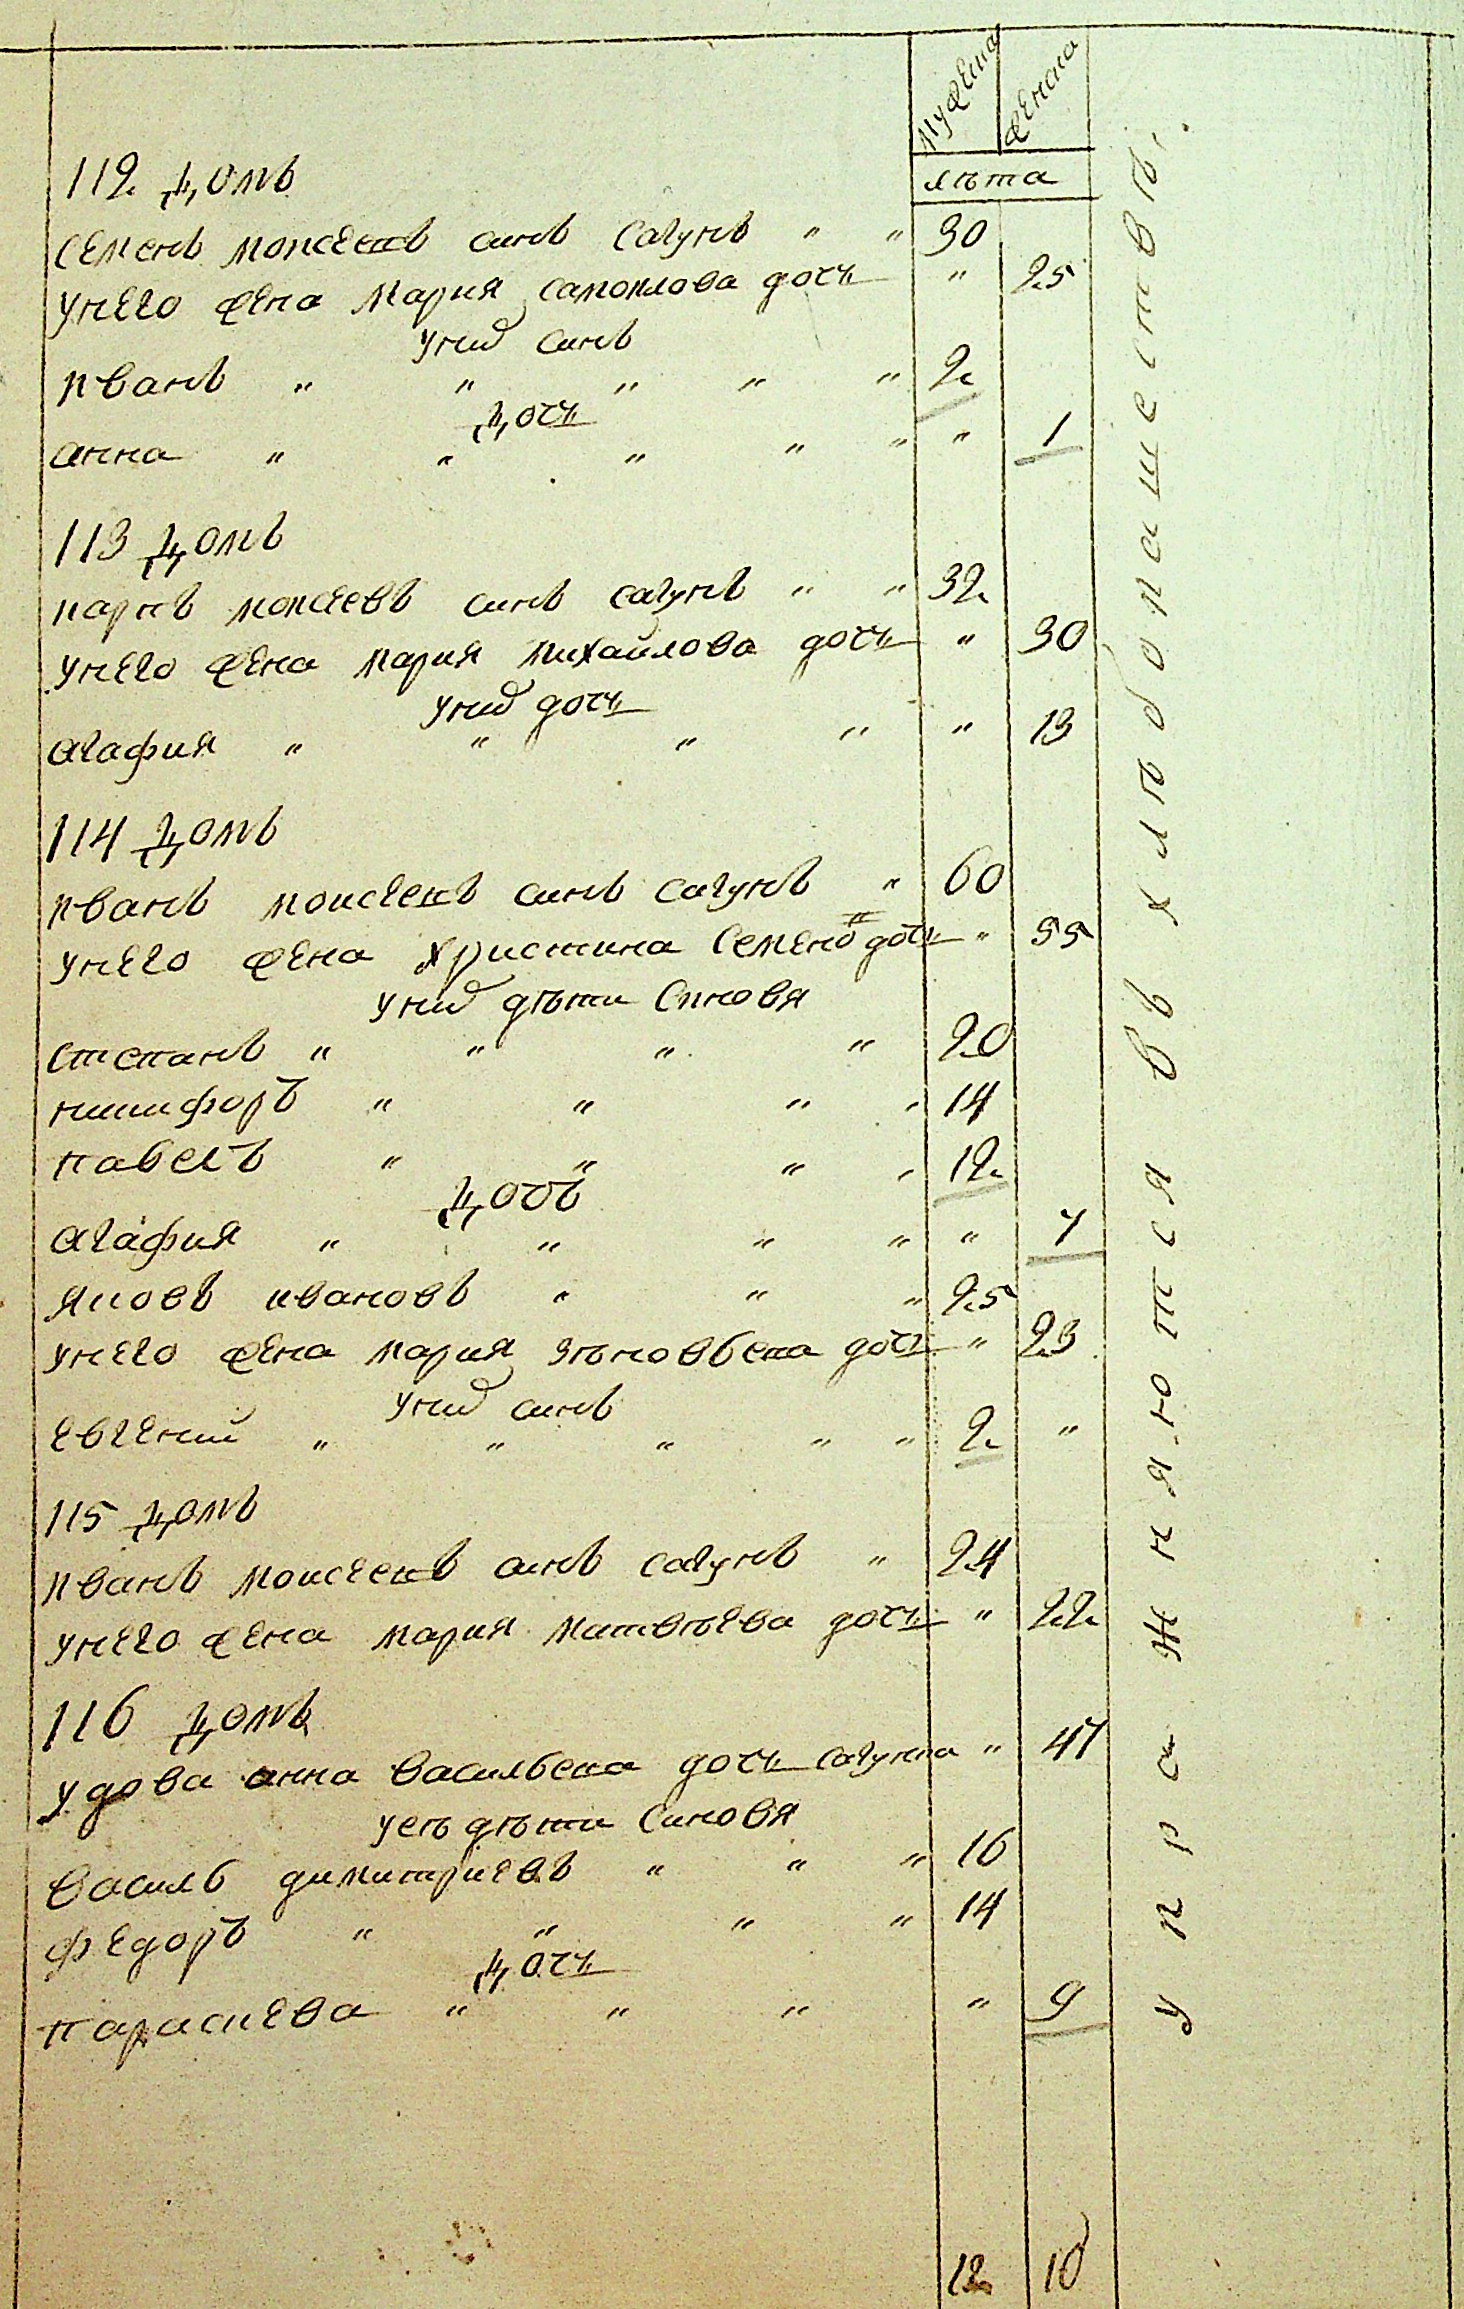 мужеска женска
лѣта
112 Домъ
Семенъ моисеевъ синъ Сагунъ " " 30
у него жена Мария самоилова дочь " 25
у них синъ
иванъ " " " " " 2
Дочь
анна " " " " " " 1
113 Домъ
карпъ моисеевъ синъ сагунъ " " 32
у него жена мария михайлова дочь " 30
у них дочь
агафия " " " " " 13
114 Домъ
иванъ моисеевъ синъ сагунъ " 60
у него жена христина Семено дочь " 55
у них дѣти Синовя
степанъ " " " " 20
никифоръ " " " " 14
павелъ " " " " 12
Дочь
агафия " " " " " 7
яковъ ивановъ " " " 25
у него жена мария зѣновьева дочь " 23
у них синъ
евгений " " " " " 2 "
115 Домъ
иванъ моисеевъ синъ сагунъ " 24
у него жена мария матвѣева дочь " 22
116 Домъ
удова анна васильева дочь сагунка " 47
у еѣ дѣти Синовя
василь димитриевъ " " " 16
федоръ " " " " 14
Дочь
параскева " " " " 9
12 10
упражняются въ хлѣбопашествѣ.